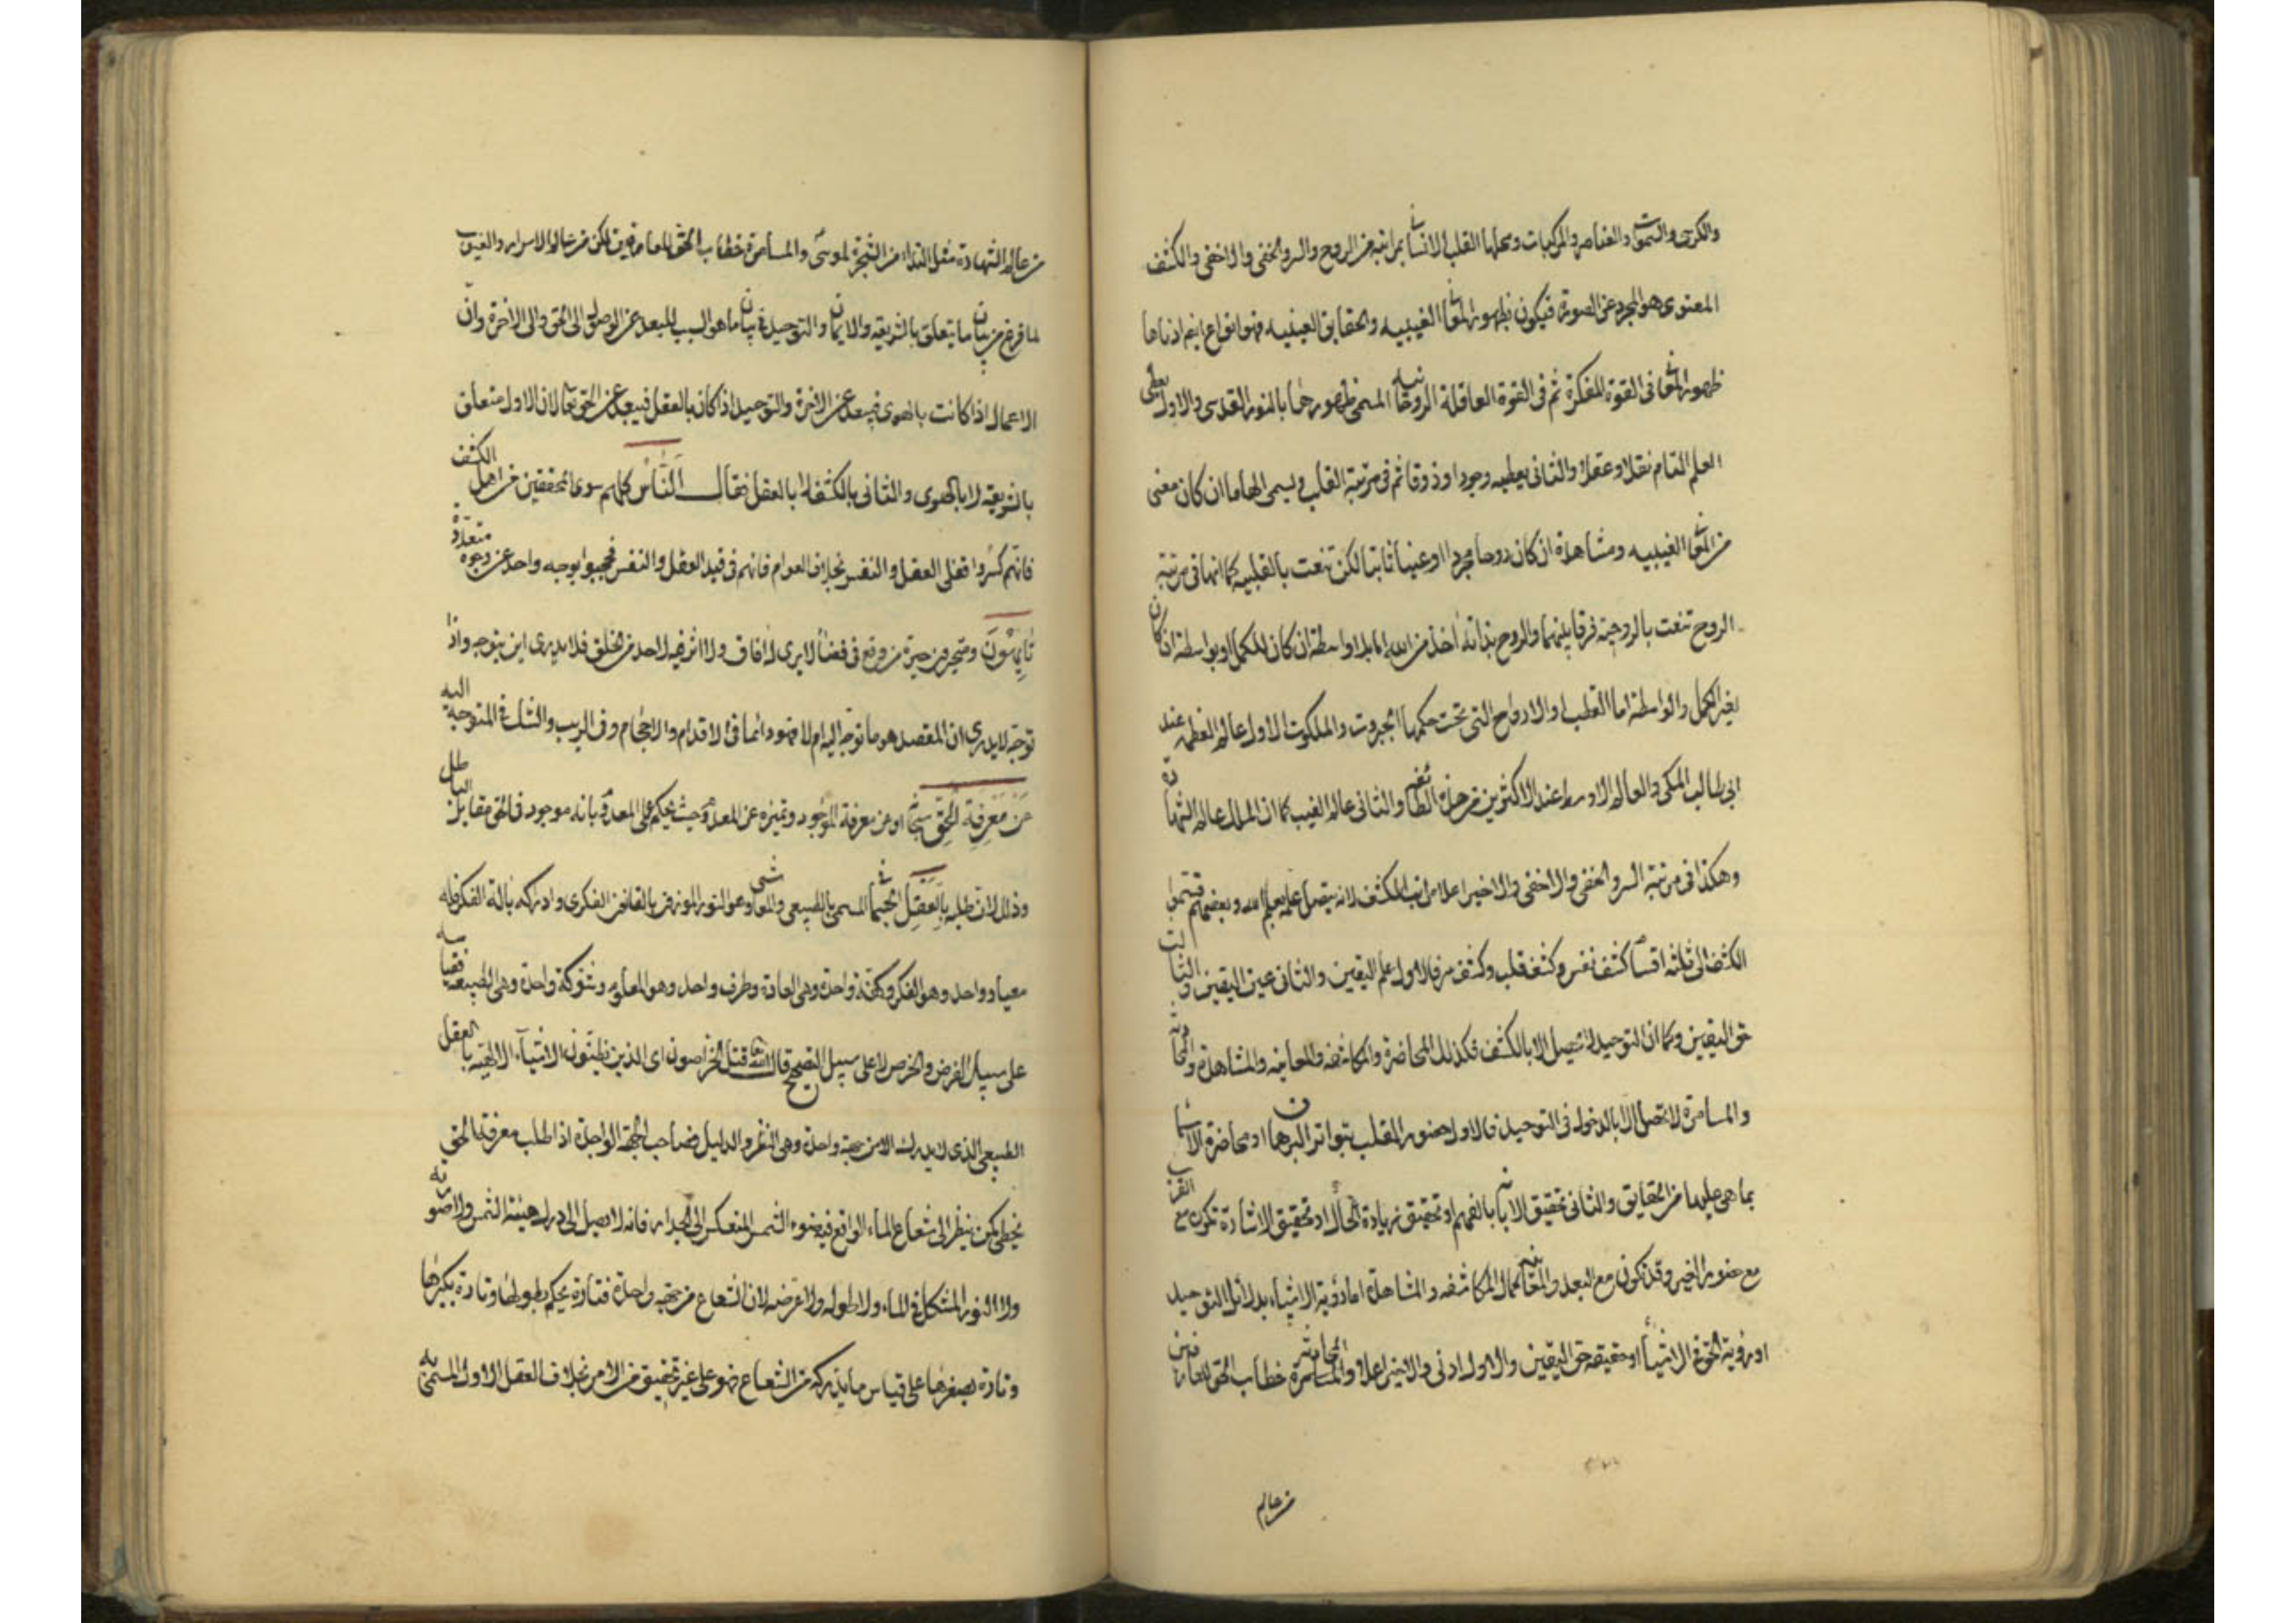 والكرسي والسموات والعناصر والمركبات ومحلها القلب الانساني بمراتبه من الروح والسر والخفى والاخفى والكشف
المعنوى هو المجرد عن الصورة فيكون بظهور المعانى الغيبيه والحقايق العينيه فهو انواع ايضا ادناها
ظهور المعانى فى القوة المفكرة ثم فى القوة العاقلة الروحانيه المسمى ظهورها بالنور القدسى والاول يعطى
العلم التام نقلا وعقلا والثانى يعطيه وجودا وذوقا ثم فى مرتبة القلب ويسمى الهاما ان كان معنى
من المعانى الغيبيه ومشاهدة ان كان روحا مجردا او عينا ثابتا لكن تنعت بالقلبيه كما انها فى مرتبة
الروح تنعت بالروحية فرقا بينهما والروح بذاته اخذ من الله اما بلا واسطة ان كان للكمل او بواسطة ان كان
بغير الكمل والواسطة اما القطب او الارواح التى تحت حكمها الجبروت والملكوت الاول عالم العظمه عند
ابى طالب المكى والعالم الاوسط عند الاكثرين والثانى عالم الغيب كما ان الملك عالم الشهادة
وهكذا فى مرتبة السر والخفى والاخفى والاخير اعلا مراتب الكشف لانه يتصل علمه بعلم الله وبعضهم قسموا
الكشف الى ثلثة اقسام كشف نفس وكشف قلب وكشف سر فالاول علم اليقين والثانى عين اليقين والثالث
حق اليقين وكما ان التوحيد لا تحصل الا بالكشف فكذلك المحاضرة والمكاشفه والمعاينه والمشاهدة والمحادثة
والمسامرة لا تحصل الا بالدخول فى التوحيد فالاول حضور القلب بتواتر البرهان او محاضرة الاسما
بما هى عليها من الحقايق والثانى تحقيق الابانة بالفهم او تحقيق زيادة الحال او تحقيق الاشارة تكون مع القرب
مع حضور الغير وقد تكون مع البعد والمعاينه كمال المكاشفه والمشاهدة اما رؤية الاشياء بدلائل التوحيد
او رؤية الحق فى الاشيأ او حقيقه حق اليقين والاول ادنى والاخير اعلا والمحادثه خطاب الحق للعارفين
من عالم
من عالم الشهادة مثل النداء من الشجرة لموسى والمسامرة خطاب الحق للعارفين لكن من عالم الاسرار والغيوب
لما فرغ من بيان ما يتعلق بالشريعه والايمان والتوحيد فى بيان ما هو السبب للبعد عن الوصل الى الحق والى الاخرة وان
الاعمال اذا كانت بالهوى فيبعد عن الاخرة والتوحيد اذا كان بالعقل فيبعد عن الحق تعالى لان الاول متعلق
بالشريعة لا بالهوى والثانى بالكشف لا بالعقل فقال الناس كلهم سوى المحققين من اهل الكشف
فانهم كسروا قفلى العقل والنفس بخلاف العوام فانهم فى قيد العقل والنفس فحجبوا بوجه واحد عن وجوه متعددة
تايهون ومتحيرون حيرة من وقع فى فضأ لا يرى له افاق ولا اثر فيه لاحد من الخلق فلا يدرى اين يتوجه واذا
توجه لا يدرى ان المقصد هو ما توجه اليه ام لا فهو دائما فى الاقدام والاحجام وفى الريب والشك فى المتوجه اليه
عن معرفة الحق سبحانه او من معرفة الموجود وتميزه عن المعدوم حيث يحكم على المعدوم بانه موجود فالحق مقابل الباطل
وذلك لان طلبه بالعقل الجسمانى المسمى بالطبيعى والمعاشى وهو النور الموزون بالقانون الفكرى وادراكه بالة الفكر فله
معيار واحد وهو الفكر وكفة واحدة وهى العادة وطرف واحد وهو المعلوم وشوكة واحدة وهى الطبيعه فقياسه
على سبيل الفرض والخرص لا على سبيل التصحيح قال الله تعالى قتل الخراصون اى الذين يظنون الاشيآء الالهية بالعقل
الطبيعى الذى لا يدرك الا من جهة واحدة وهى النظر والدليل فصاحب الجهة الواحدة اذا طلب معرفة الحق
يخطى كمن ينظر الى شعاع الماء الواقع فيه ضوء الشمس المنعكس الى الجدار فانه لا يصل الى درك هيئة الشمس ولا صورته
ولا النور المشكل فى الماء ولا طوله ولا عرضه لان الشعاع من جهة واحدة فتارة يحكم بطولها وتارة بكبرها
وتارة بصغرها على قياس ما يدركه من الشعاع فهو على غير تحقيق من الامر بخلاف العقل الاول المسمى به